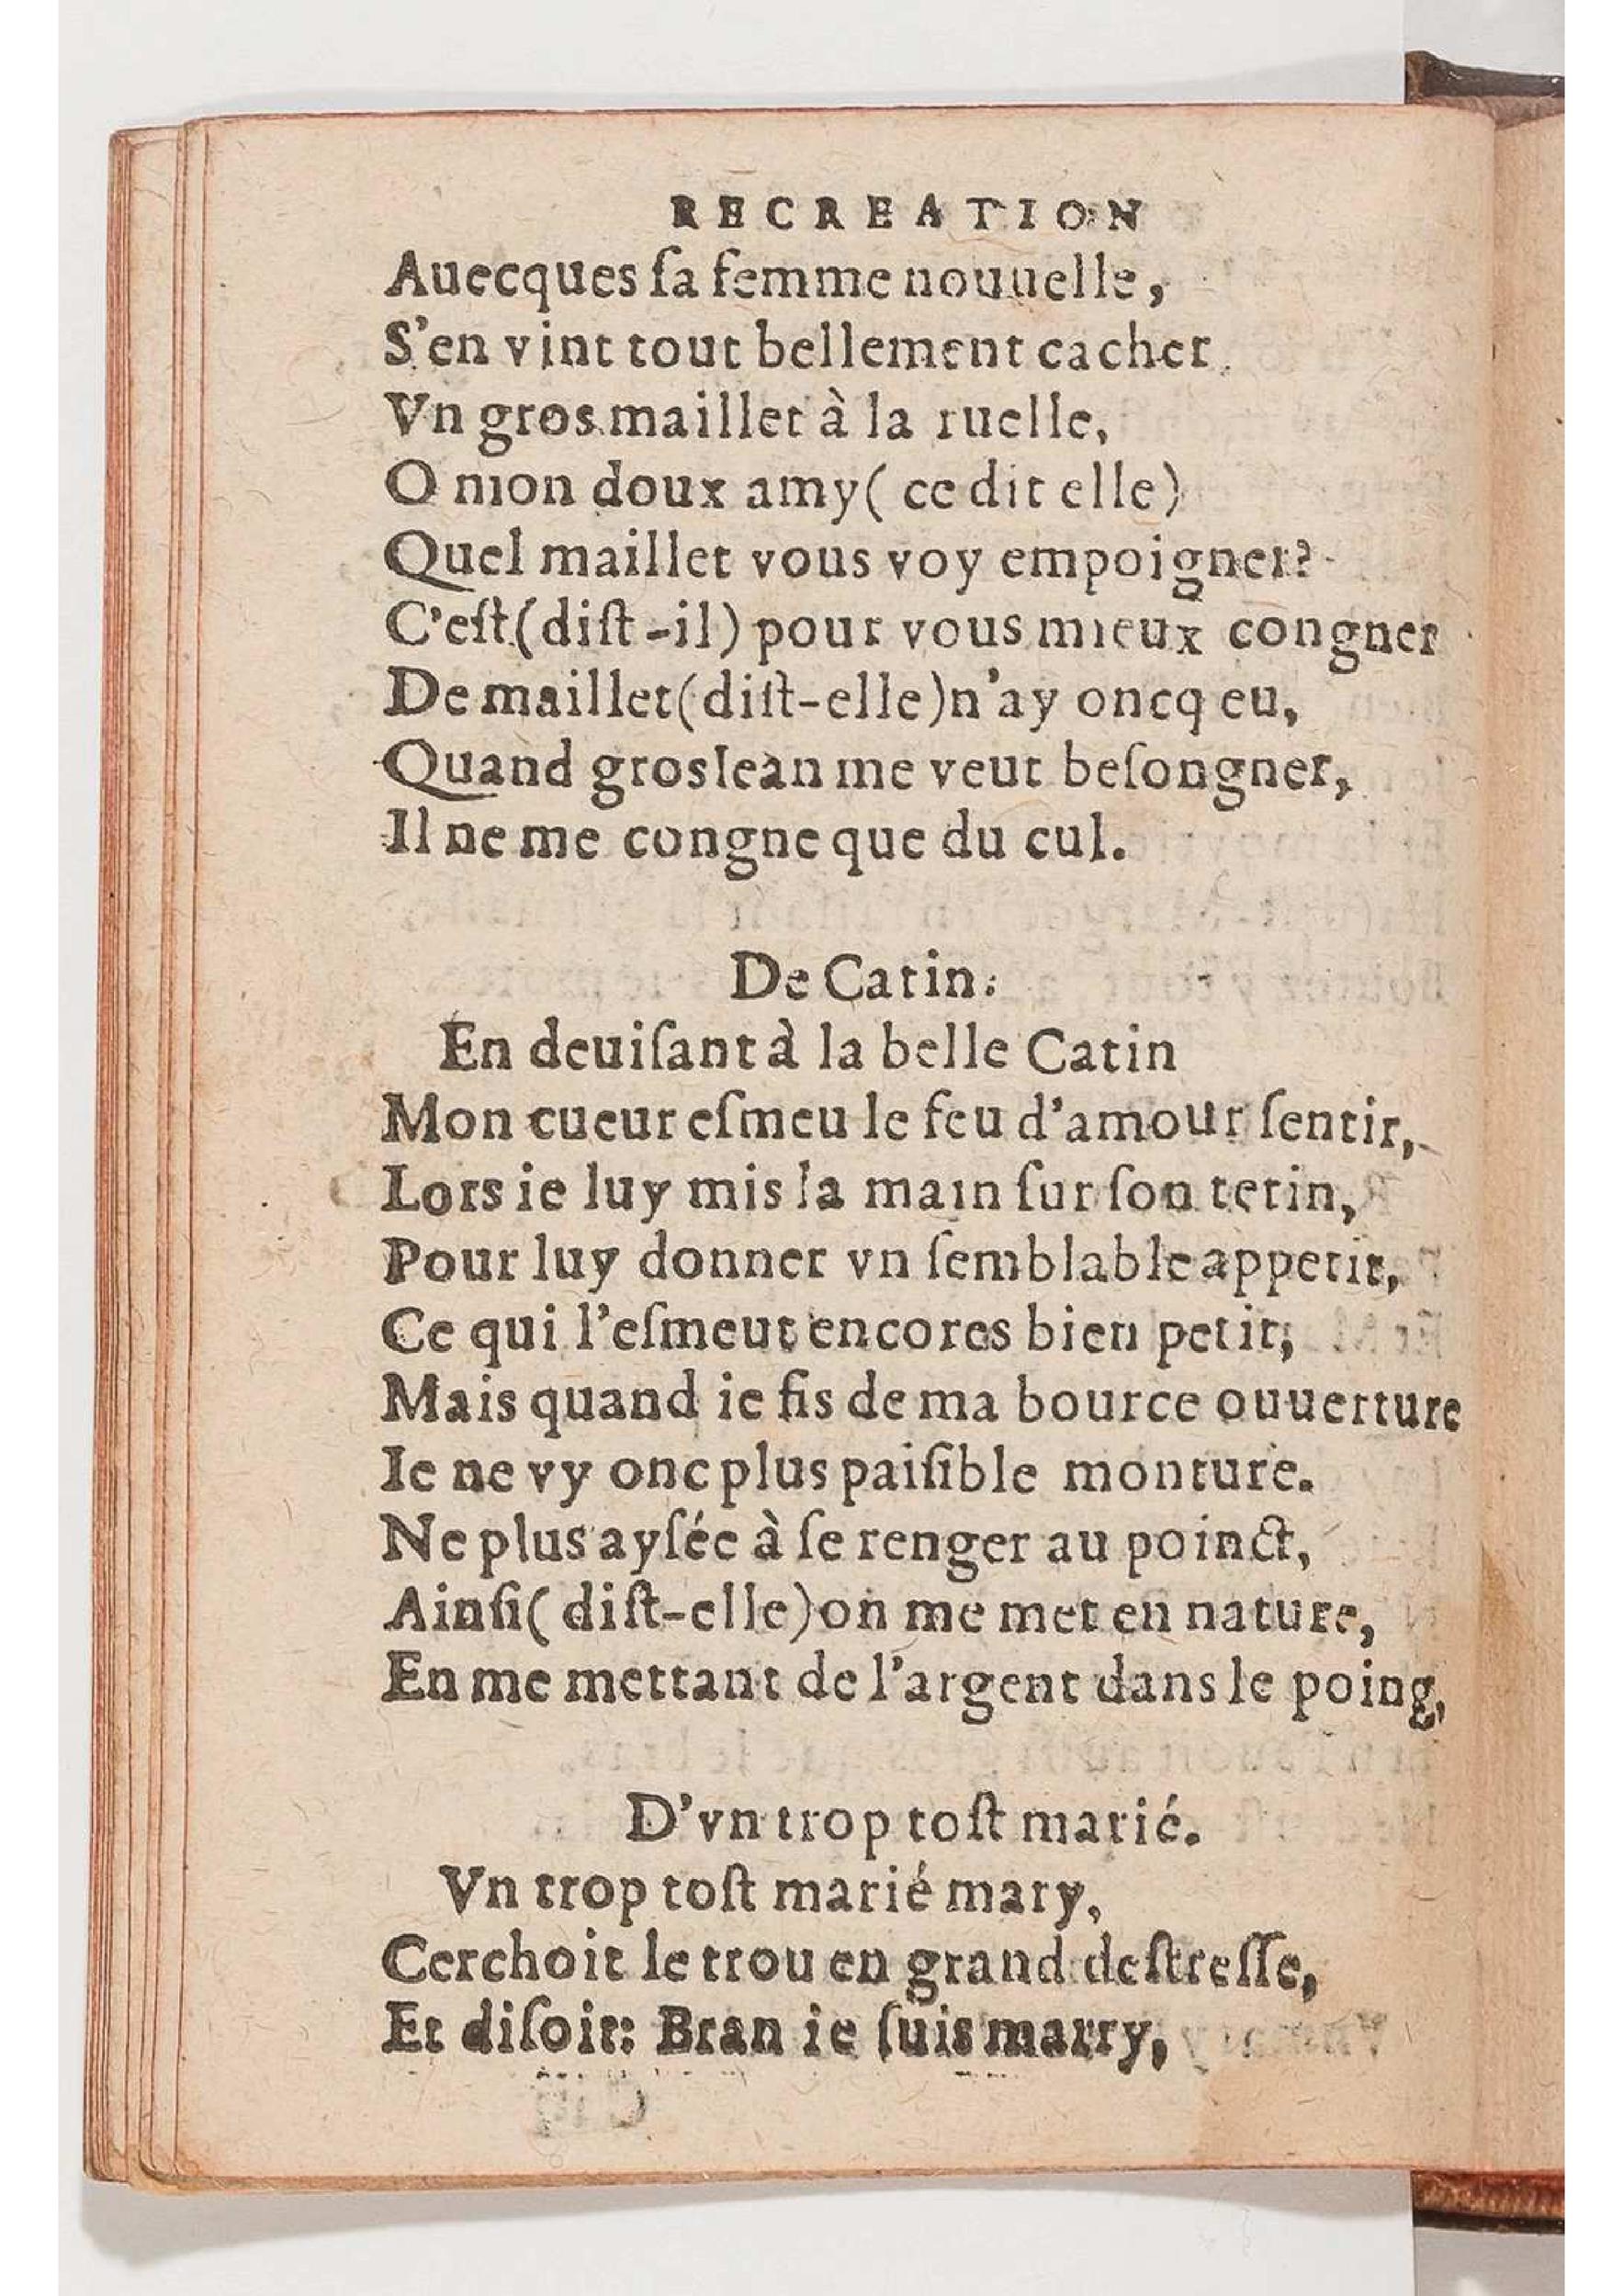 RECREATION
Auecques ſa femme nouuelle,
S'en vint tout bellement cacher
Vn gros maillet à la ruelle,
O mon doux amy( ce dit elle)
Quel maillet vous voy empoigner?
C'eſt(diſt-il) pour vous mieux congner
De maillet(diſt-elle)n'ay oncq eu,
Quand gros Iean me veut beſongner,
Il ne me congne que du cul.
De Catin.
En deuiſant à la belle Catin
Mon cueur eſmeu le feu d'amour ſentir,
Lors ie luy mis la main ſur ſon tetin,
Pour luy donner vn ſemblable appetit,
Ce qui l'eſmeut encores bien petit;
Mais quand ie fis de ma bource ouuerture
Ie ne vy onc plus paiſible monture.
Ne plus ayſée à ſe renger au poinct,
Ainſi( diſt-elle)on me met en nature,
En me mettant de l'argent dans le poing,
D'vn trop toſt marié.
Vn trop toſt marié mary,
Cerchoit le trou en grand deſtreſſe,
Et diſoit: Bran ie ſuis marry,